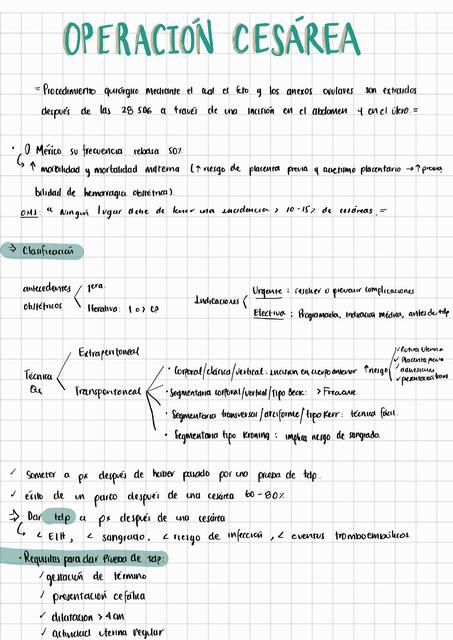 OPERACIÓN CESÁREA
= Procedimiento quirúrgico mediante el cual el feto y los anexos ovulares son extraidos
después de las 28 SDG a través de una incisión en el abdomen y en el útero. =
• O México su frecuencia rebasa 50%
↑ morbilidad y mortalidad materna (↑ riesgo de placenta previa y acretismo placentario → ↑ proba
bilidad de hemorragia obstétrica).
OMS: " Ningún lugar debe de tener una incidencia > 10-15% de cesáreas. =
⇒ Clasificación
antecedentes obstétricos < 1era.
Iterativa: 1 o > CP
Indicaciones < Urgente: resolver o prevenir complicaciones
Electiva: Programada, indicación médica, antes de tdp
Técnica Qx < Extraperitoneal
Transperitoneal
• Corporal/clásica/vertical: incisión en cuerpo anterior ↑ riesgo
Rotura uterina
Placenta previa
adhesiones
• Segmentaria corporal/vertical/tipo Beck: > Frecuente.
• Segmentaria transversal/arciforme/tipo Kerr: técnica fácil.
• Segmentaria tipo Kroning: implica riesgo de sangrado.
✓ Someter a px después de haber pasado por una prueba de tdp.
✓ éxito de un parto después de una cesárea 60-80%
⇒ Dar tdp a px después de una cesárea
< EIH, < sangrado, < riesgo de infección, < eventos tromboembólicos.
• Requisitos para dar Prueba de tdp:
✓ gestación de término
✓ presentación cefálica
✓ dilatación > 4cm
✓ actividad uterina regular